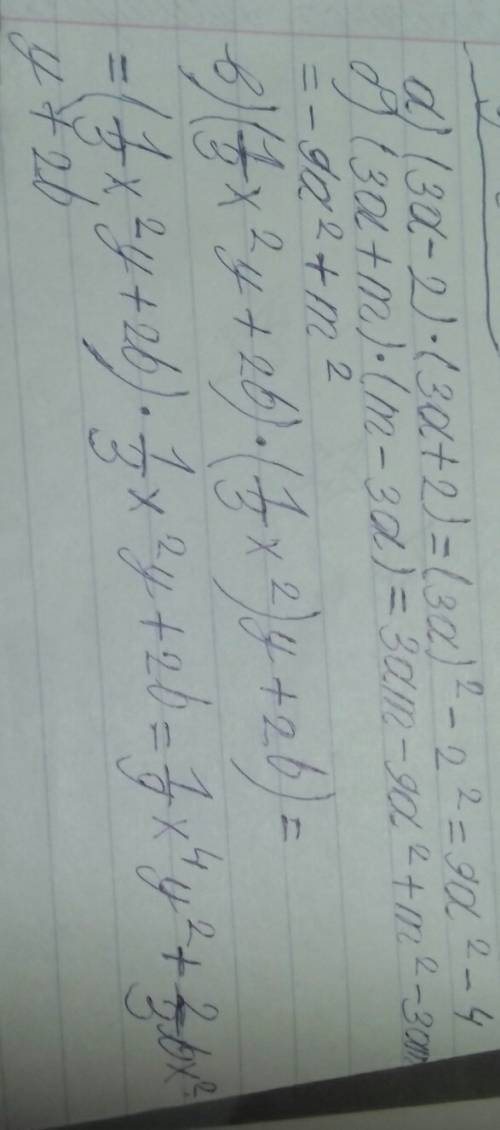 а) (3a-2)·(3a+2)=(3a)²-2²=9a²-4
б) (3a+m)·(m-3a)=3am-9a²+m²-3am
=-9a²+m²
в) (1/3 x²y+2b)·(1/3 x²)y+2b)=
=(1/3 x²y+2b)·1/3 x²y+2b=1/9 x⁴y²+2/3 bx²
y+2b